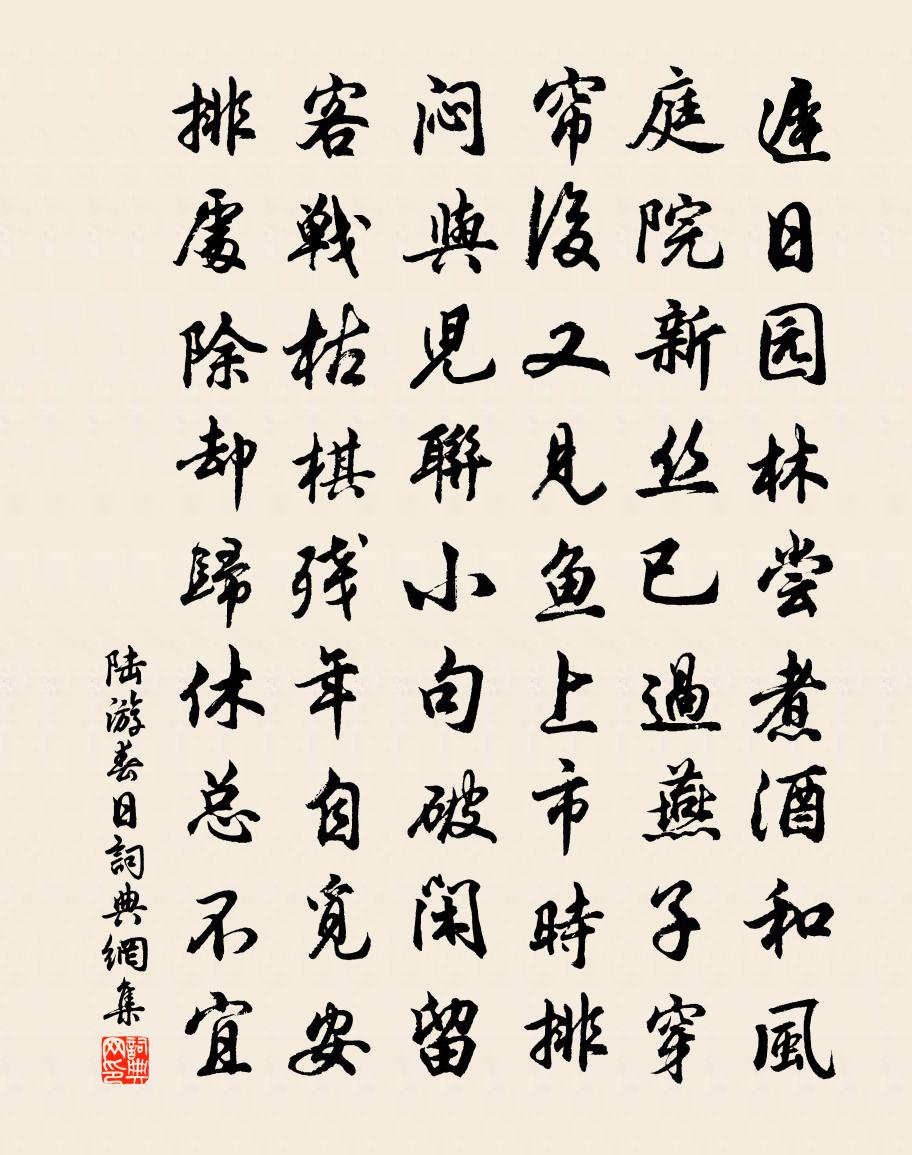 遲日园林尝煮酒和風
庭院新丝已過燕子穿
帘後又見鱼上市時排
闷與児聯小句破闲留
客戦枯棋残年自觅安
排處除却歸休总不宜
陆游春日詞典網集
詞典网印